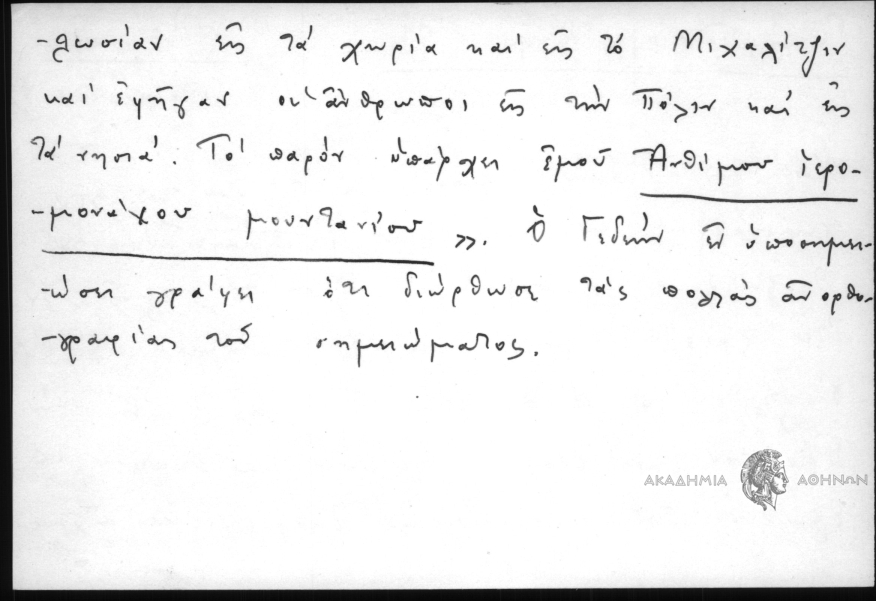 -λωσίαν εἰς τά χωρία καί εἰς τό Μιχαλίτζιν
καί ἔφηγαν οἱ ἄνθρωποι εἰς τήν Πόλιν καί εἰς
τά νησιά. Τό παρόν ὑπάρχει ἐμοῦ Ἀνθίμου ἱερο-
-μονάχου μουντανίου ». Ὁ Γεδεών ἐν ὑποσημει-
-ώσει γράφει ὅτι διώρθωσε τάς πολλάς ἀνορθο-
-γραφίας τοῦ σημειώματος.
ΑΚΑΔΗΜΙΑ ΑΘΗΝΩΝ